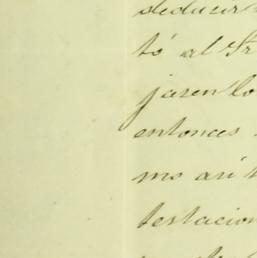 deducir
tó al Sr
jasen lo
entonces
mo así
testacion